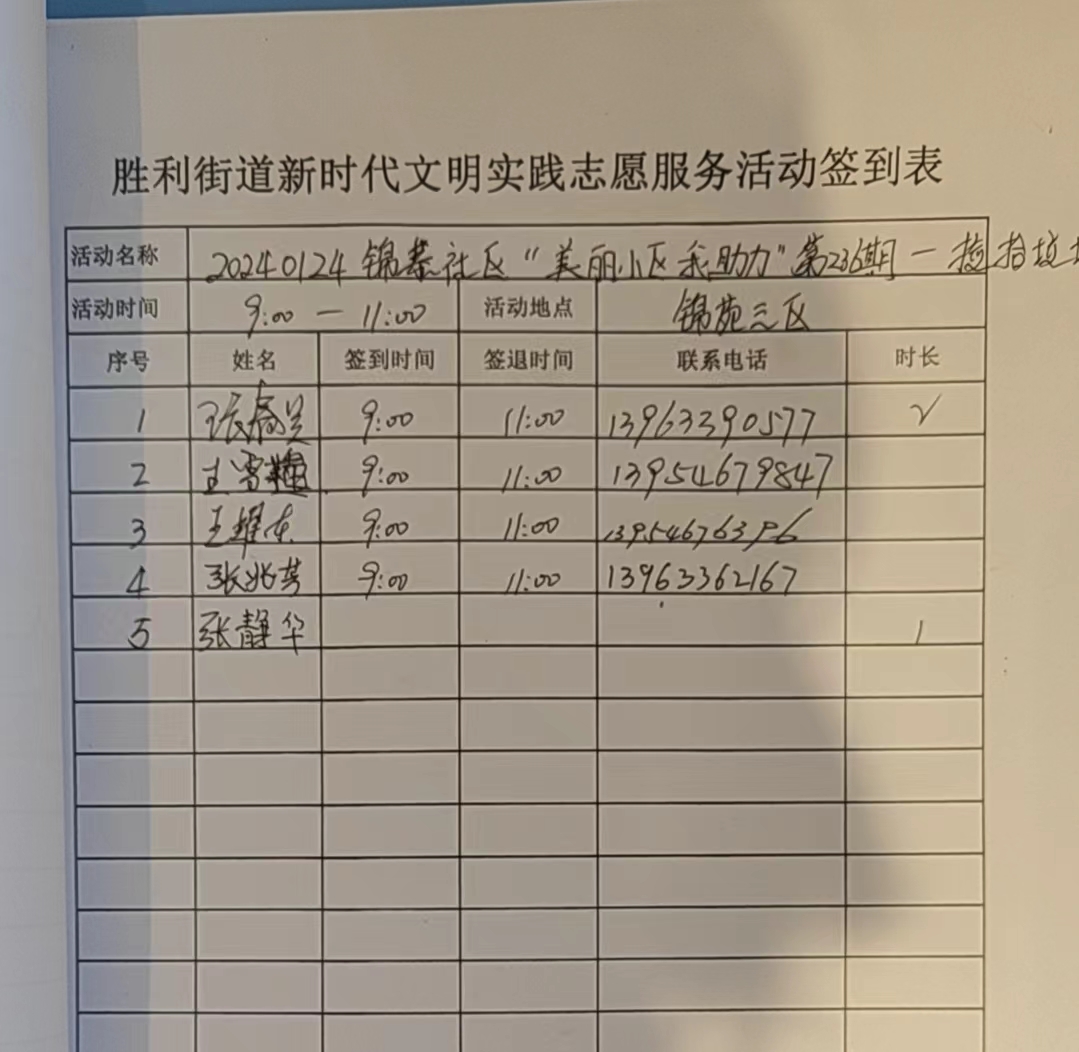 胜利街道新时代文明实践志愿服务活动签到表
活动名称 20240124 锦苑社区“美丽小区我助力”第236期一捡拾垃圾
活动时间 9:00 — 11:00 活动地点 锦苑三区
序号 姓名 签到时间 签退时间 联系电话 时长
1 张 9:00 11:00 13963390577 √
2 王雪 9:00 11:00 13954679847
3 王耀东 9:00 11:00
4 张兆芳 9:00 11:00 13963362167
5 张静华 1